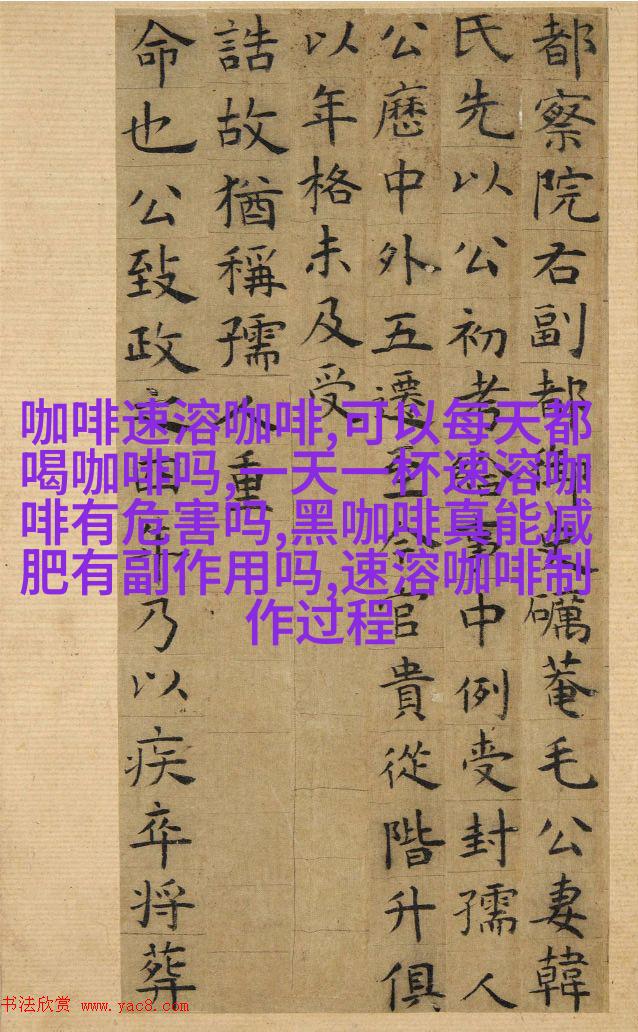 都察院右副都御史礪菴毛公妻韓
氏先以公初考中例受封孺人
公歷中外五遷至今官貴從階升俱
以年格未及受
誥故猶稱孺人重
命也公致政乃以疾卒將葬
咖啡速溶咖啡,可以每天都
喝咖啡吗,一天一杯速溶咖
啡有危害吗,黑咖啡真能减
肥有副作用吗,速溶咖啡制
作过程
书法欣赏 www.yac8.com